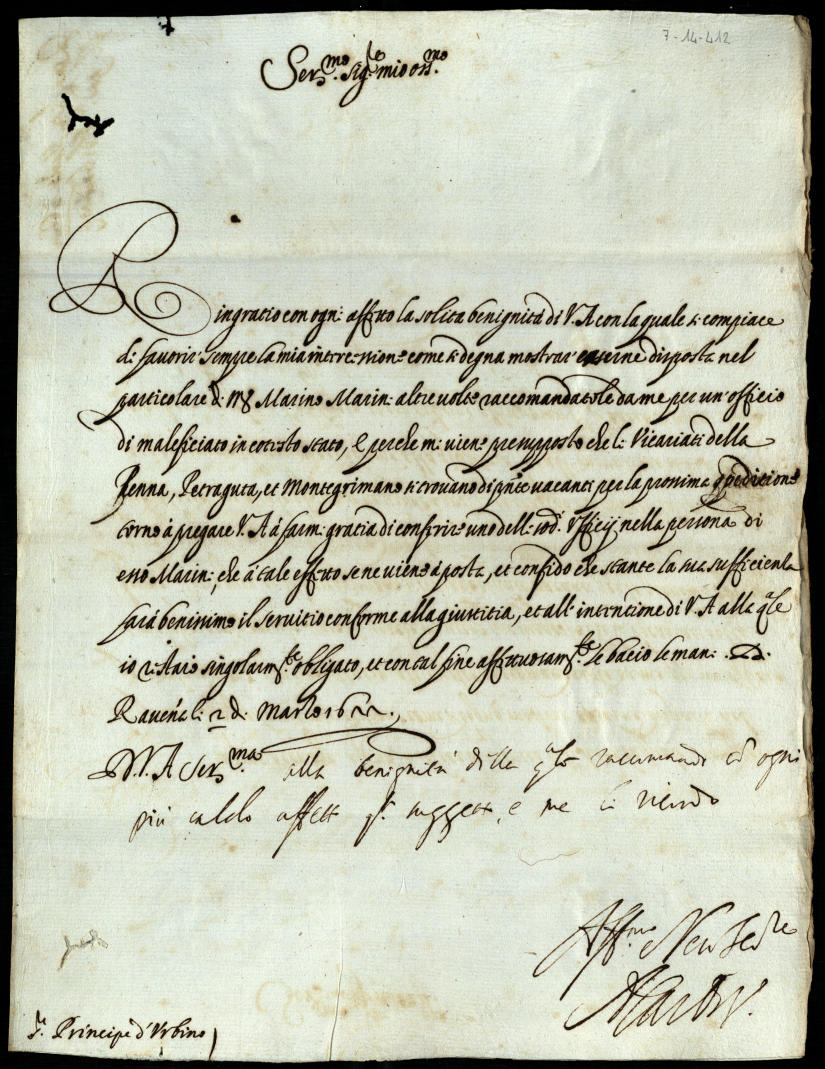 7-14-412
Ser.mo sig.re mio oss.mo
Ringratio con ogni affetto la solita benignità di V.A con la quale si compiace
di favorir sempre la mia intercessione come si degna mostrar esserne disposta nel
particolare di Marino Marini altre volte raccomandatole da me per un officio
di maleficiato in cotesto stato, e perche mi viene presupposto che li Vicariati della
Penna, Petraguta, et Montegrimano si trovano di pnte vacanti per la prossima speditione
torno à pregare V.A à farmi gratia di conferire uno delli sod.i Ufficij nella persona di
esso Marini, che à tale effetto se ne viene à posta, et confido che stante la sua sufficienza
farà benissimo il servitio conforme alla giustitia, et all' intentione di V.A alla qle
io restarò singolarm.te obligato, et con tal fine affettuosam.te le bacio le mani. Di
Ravena li 2 di Marzo
D.V.A Ser.ma alla benignità della qle raccomando con ogni
più caldo affetto sogetto, e me le ricordo
Aff.mo e Ser.re
S.r Principe d'Urbino